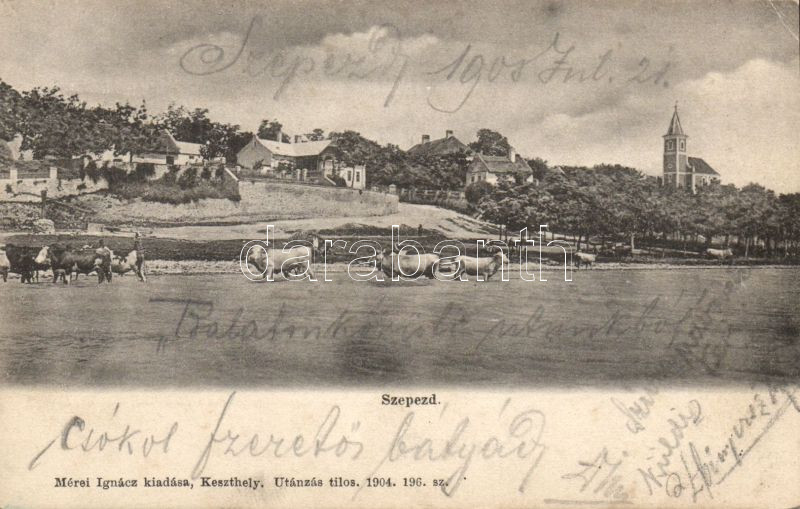 Szepezd 1905 Jul. 21.
darabanth
"Balatonkörüli utunkból"
Szepezd.
Csókol szerető bátyád
Mérei Ignácz kiadása, Keszthely. Utánzás tilos. 1904. 196. sz.